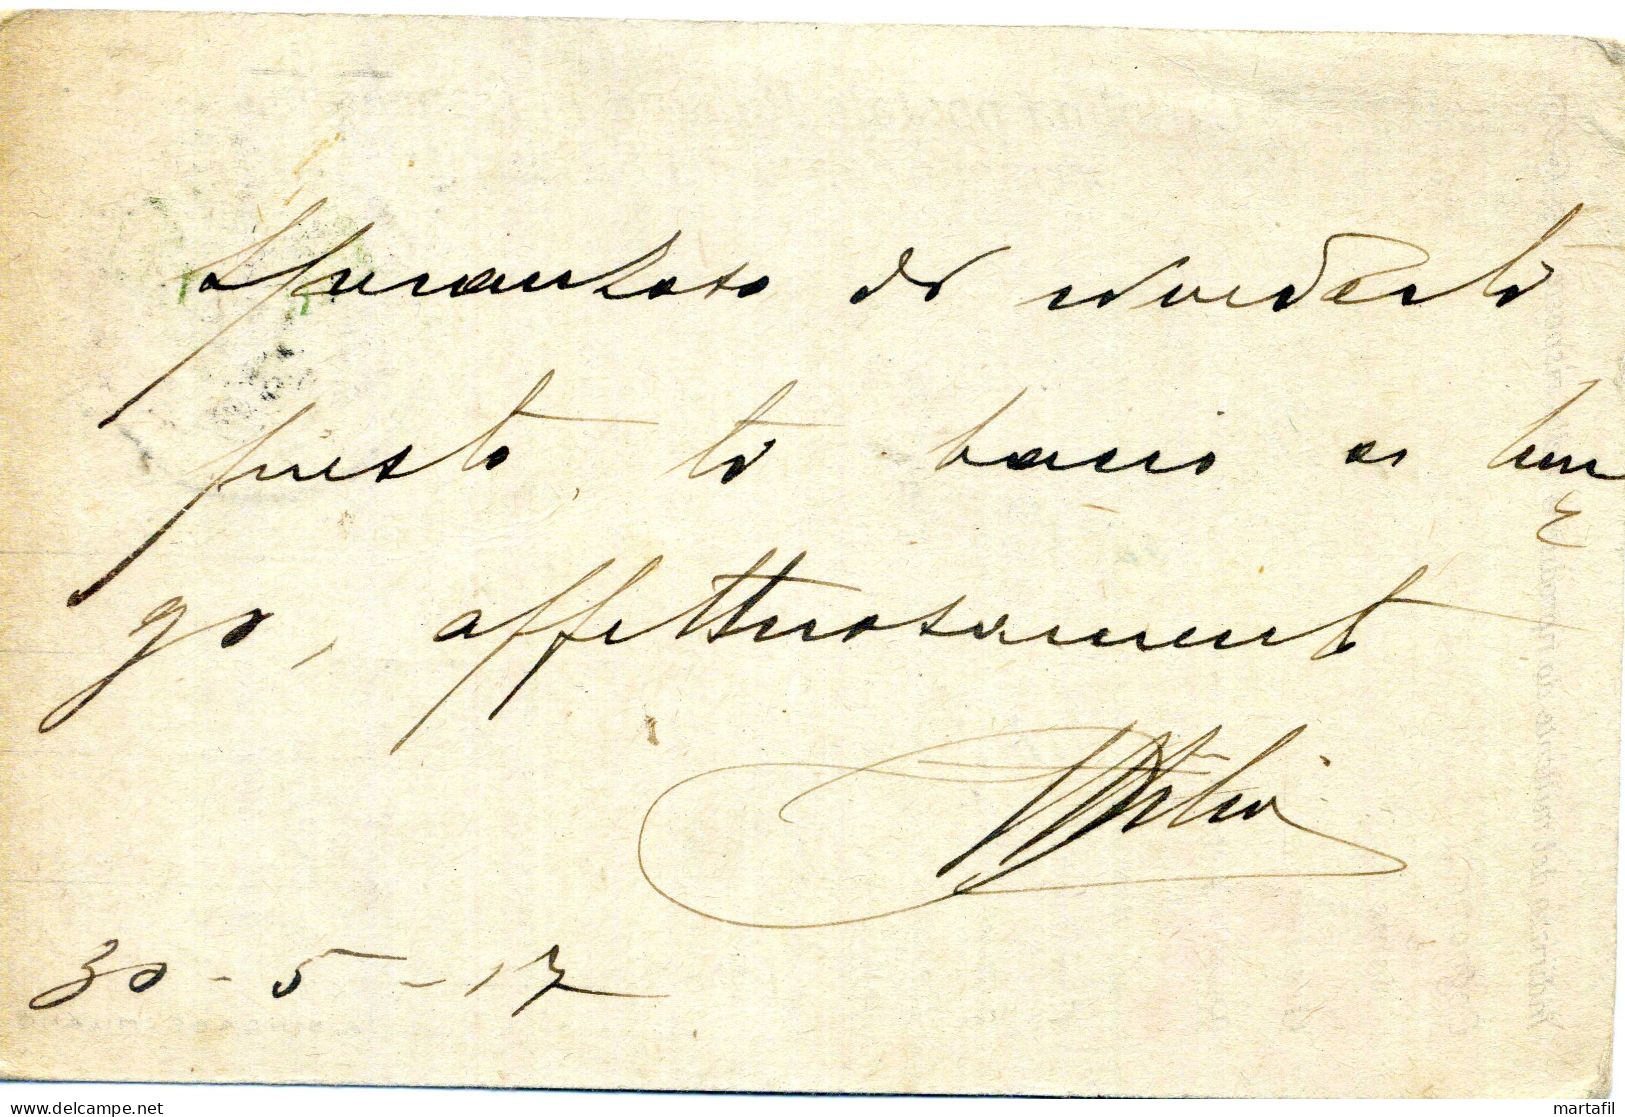 Speranzoso di rivederti
presto, ti bacio a lun
go, affettuosamente
Attilio
30-5-17
www.delcampe.net
martafil